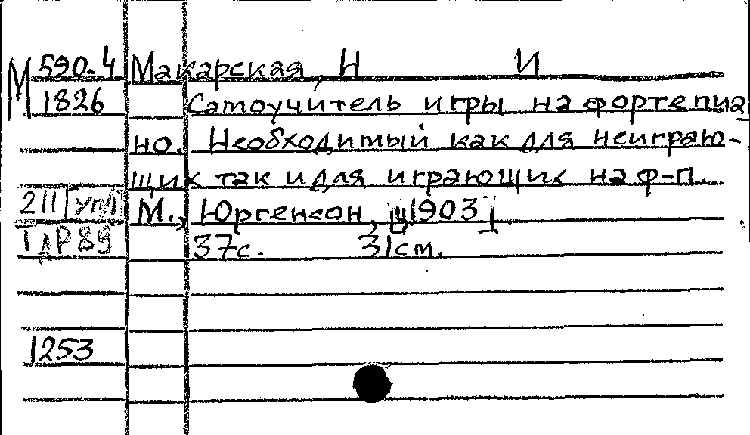 М 590-4 Макарская, Н И
1826 Самоучитель игры на фортепиа
но. Необходимый как для неиграю-
щих так и для играющих на ф-п.
211 М., Юргенсон, ц 1903
37с. 31см.
1253